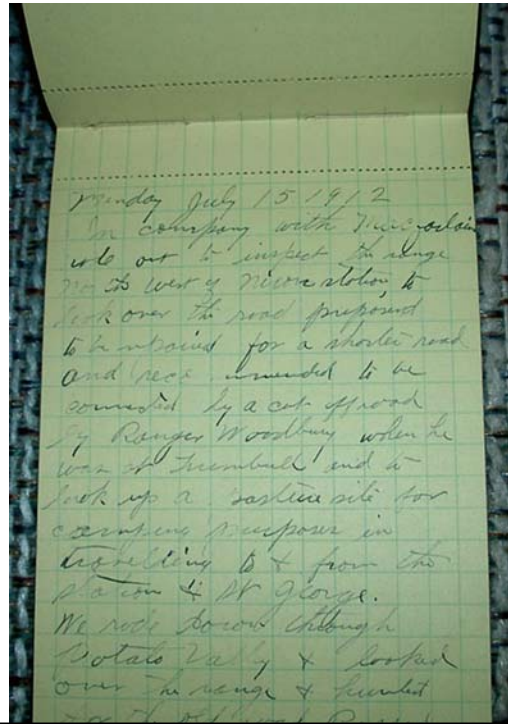 Monday July 15 1912
In company with
rode out to inspect the range
North west of Nixon station to
look over the road proposed
to be repaired for a shorter road
and reco mmended to be
connected by a cut off road
by Ranger Woodbury when he
was at Trumbull and to
look up a pasture site for
camping purposes in
travelling to & from the
station & St George.
We rode down through
Potato Vally & looked
over the range & hunted
for the old road